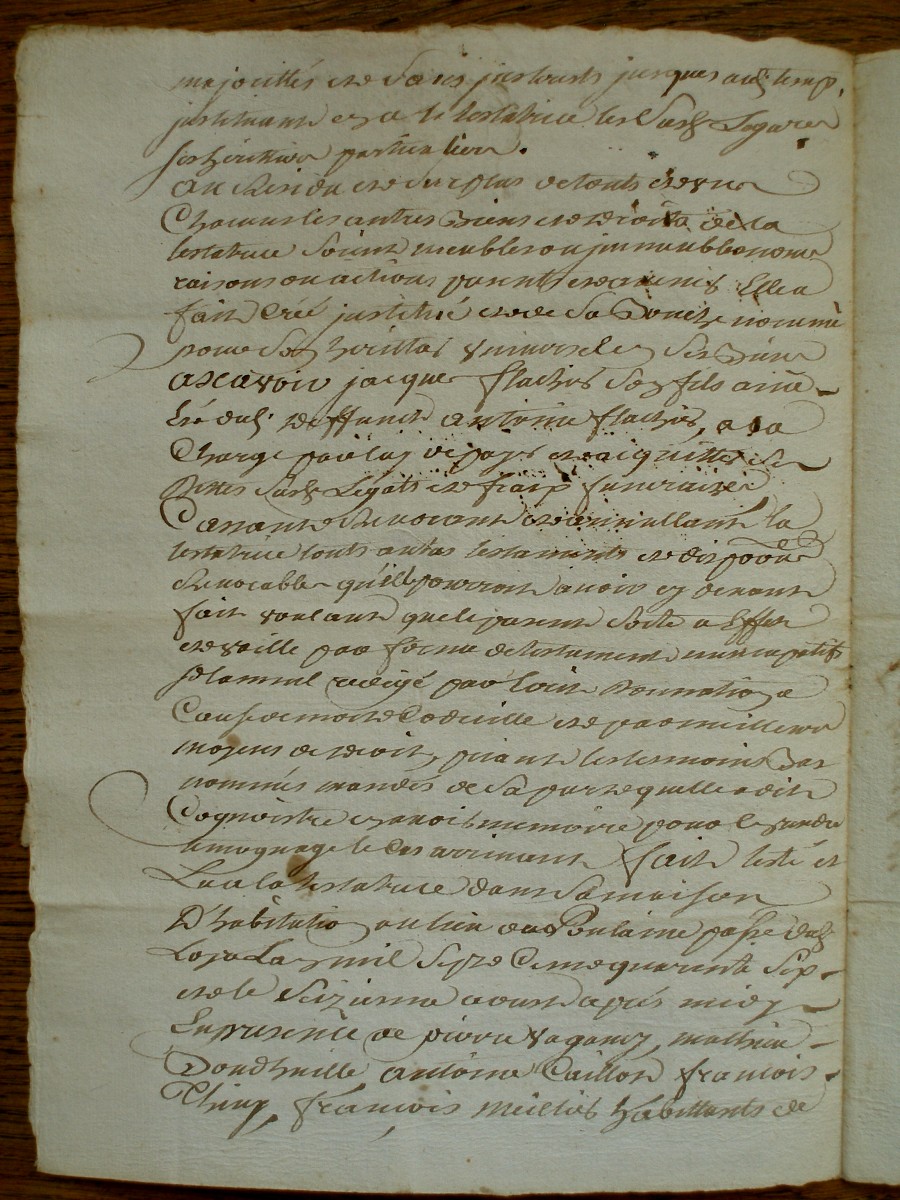 majorittés et de sous jusques aud. temp.
instituant en a la testatrice les susd. Legare
ses heritiers particuliers.
au residu et surplus de touts et un
Chacuns les autres Biens et droits de la
testatrice soient meubles ou immeubles noms
raisons ou actions presents et avenir Elle a
fait Créé institué et de sa Bouche nommé
pour son heritier universel en ses Biens
a scavoir jacques flachas son fils ainé
dud. deffunt antoine flachas, a la
Charge par luy de payer et acquitter ses
dettes susd. Legats et fraix funeraires
Cassant Revocant et annullant la
testatrice touts autres testaments et dispoons
Revocables qu'ill pourroit avoir cy devant
fait voulant que le present sorte a Effet
et vaille par forme de testament nuncupatif
solannel redigé par écrit Donnation a
Cause de mort Codicille et par meilleur
moyens de droit, priant les tesmoins Bas
nommés mandés de sa part quelle a dit
Cognoistre en avoir memoire pour en rendre
temognage le Cas arrivant fait leste et
Lu a la testatrice dans sa maison
D'habitation au lieu de Poulaine passe dud.
Loya Lan mil Sept Cent quarente Sept
et le Seizieme aoust apres midy
En presence de pierre vaganey, mathieu
Dondhuille antoine Caillot francois
Thiery, francois meillas habittants de